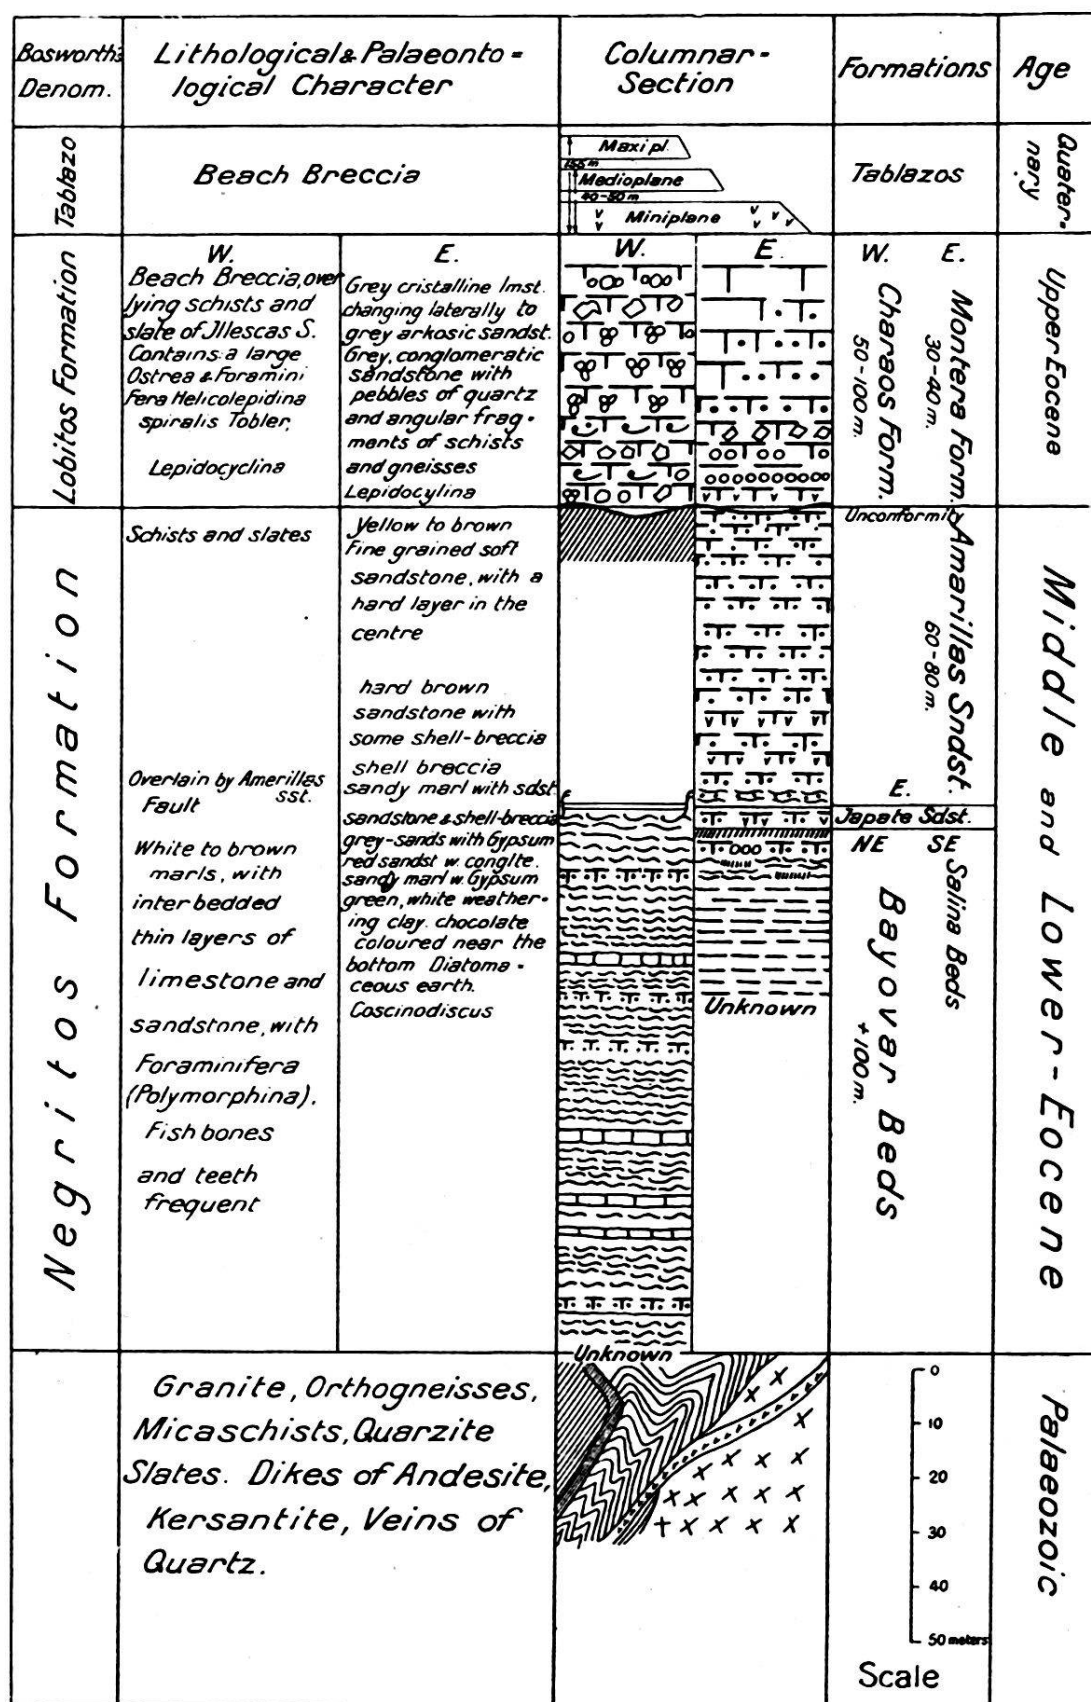 Bosworth's
Denom.
Lithological & Palaeonto =
logical Character
Columnar-
Section
Formations
Age
Tablazo
Beach Breccia
Maxi pl.
155 m
Medioplane
40-50 m
Miniplane
Tablazos
Quater-
nary
Lobitos Formation
W.
Beach Breccia, over
lying schists and
slate of Jllescas S.
Contains: a large
Ostrea & Foramini
fera Helicolepidina
spiralis Tobler,
Lepidocyclina
E.
Grey cristalline lmst.
changing laterally to
grey arkosic sandst.
Grey, conglomeratic
sandstone with
pebbles of quartz
and angular frag-
ments of schists
and gneisses
Lepidocylina
W.
E.
W.
E.
Charaos Form.
50-100 m.
Montera Form.
30-40 m.
Upper Eocene
Negritos Formation
Schists and slates
Overlain by Amerillas
sst.
Fault
White to brown
marls, with
interbedded
thin layers of
limestone and
sandstone, with
Foraminifera
(Polymorphina).
Fish bones
and teeth
frequent
Yellow to brown
fine grained soft
sandstone, with a
hard layer in the
centre
hard brown
sandstone with
some shell-breccia
shell breccia
sandy marl with sdst.
sandstone & shell-breccia
grey-sands with Gypsum
red sandst w. conglte.
sandy marl w. Gypsum
green, white weather-
ing clay. chocolate
coloured near the
bottom Diatoma-
ceous earth.
Coscinodiscus
Unknown
Unknown
Unconformity
Amarillas Sndst.
60-80 m.
E.
Japate Sdst.
NE
SE
Bayovar Beds
+100 m.
Salina Beds
Middle and Lower-Eocene
Granite, Orthogneisses,
Micaschists, Quarzite
Slates. Dikes of Andesite,
Kersantite, Veins of
Quartz.
0
10
20
30
40
50 meters
Scale
Palaeozoic